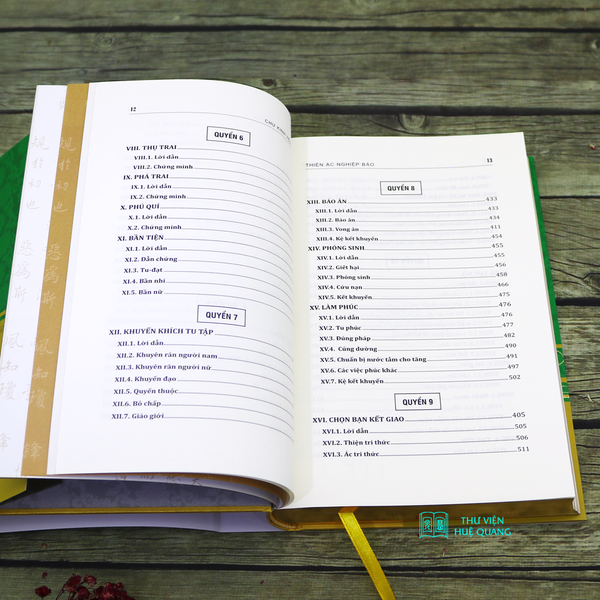 12
CHƯ KINH
QUYỂN 6
VIII. THỤ TRAI
VIII.1. Lời dẫn
VIII.2. Chứng minh
IX. PHÁ TRAI
IX.1. Lời dẫn
IX.2. Chứng minh
X. PHÚ QUÍ
X.1. Lời dẫn
X.2. Chứng minh
XI. BẦN TIỆN
XI.1. Lời dẫn
XI.2. Dẫn chứng
XI.3. Tu-đạt
XI.4. Bần nhi
XI.5. Bần nữ
QUYỂN 7
XII. KHUYẾN KHÍCH TU TẬP
XII.1. Lời dẫn
XII.2. Khuyên răn người nam
XII.3. Khuyên răn người nữ
XII.4. Khuyến đạo
XII.5. Quyến thuộc
XII.6. Bỏ chấp
XII.7. Giáo giới
THIỆN ÁC NGHIỆP BÁO 13
QUYỂN 8
XIII. BÁO ÂN 433
XIII.1. Lời dẫn 433
XIII.2. Báo ân 434
XIII.3. Vong ân 411
XIII.4. Kệ kết khuyên 454
XIV. PHÓNG SINH 455
XIV.1. Lời dẫn 455
XIV.2. Giết hại 456
XIV.3. Phóng sinh 458
XIV.4. Cứu nạn 465
XIV.5. Kết khuyên 476
XV. LÀM PHÚC 476
XV.1. Lời dẫn 476
XV.2. Tu phúc 476
XV.3. Đúng pháp 482
XV.4. Cúng dường 490
XV.5. Chuẩn bị nước tắm cho tăng 491
XV.6. Các việc phúc khác 497
XV.7. Kệ kết khuyên 502
QUYỂN 9
XVI. CHỌN BẠN KẾT GIAO 405
XVI.1. Lời dẫn 505
XVI.2. Thiện tri thức 506
XVI.3. Ác tri thức 511
THƯ VIỆN
HUỆ QUANG